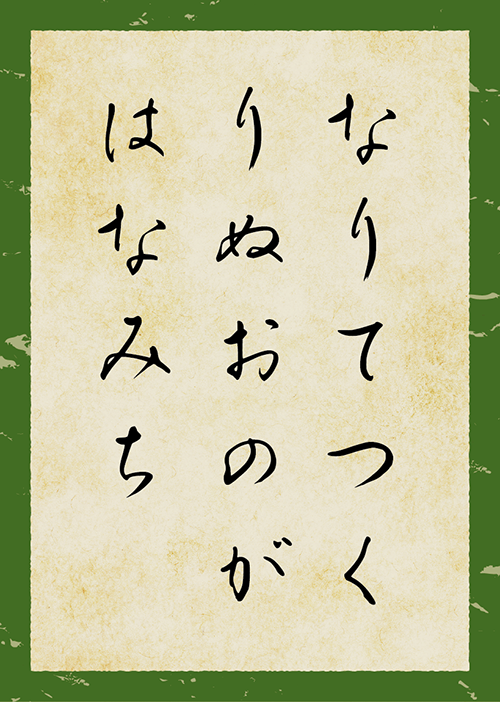 なりてつく
りぬおのが
はなみち